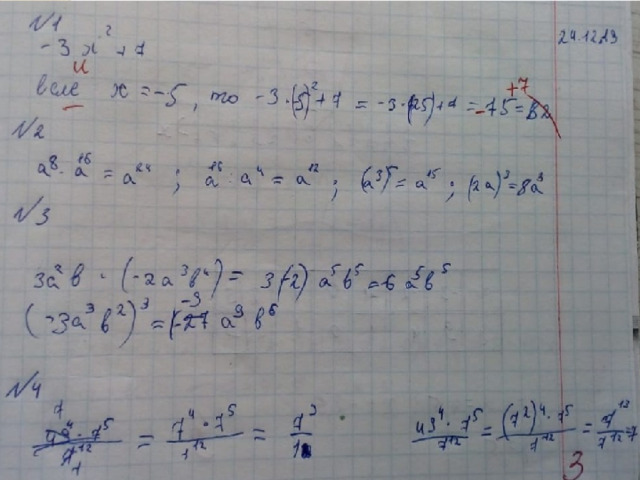 №1
24.12.23
-3x² + 7
если x = -5, то -3·(5)²+7 = -3·(25)+7 = -75 +7 = 82
№2
a⁸·a¹⁶ = a²⁴ ; a¹⁶ : a⁴ = a¹² ; (a³)⁵ = a¹⁵ ; (2a)³ = 8a³
№3
3a²b · (-2a³b⁴) = 3(-2) a⁵b⁵ = -6a⁵b⁵
(-3a³b²)³ = -27 a⁹ b⁶
№4
= 7⁴·7⁵/1¹² = 7³/1
49⁴·7⁵/7¹² = (7²)⁴·7⁵/7¹² = 7¹³/7¹² = 7
3